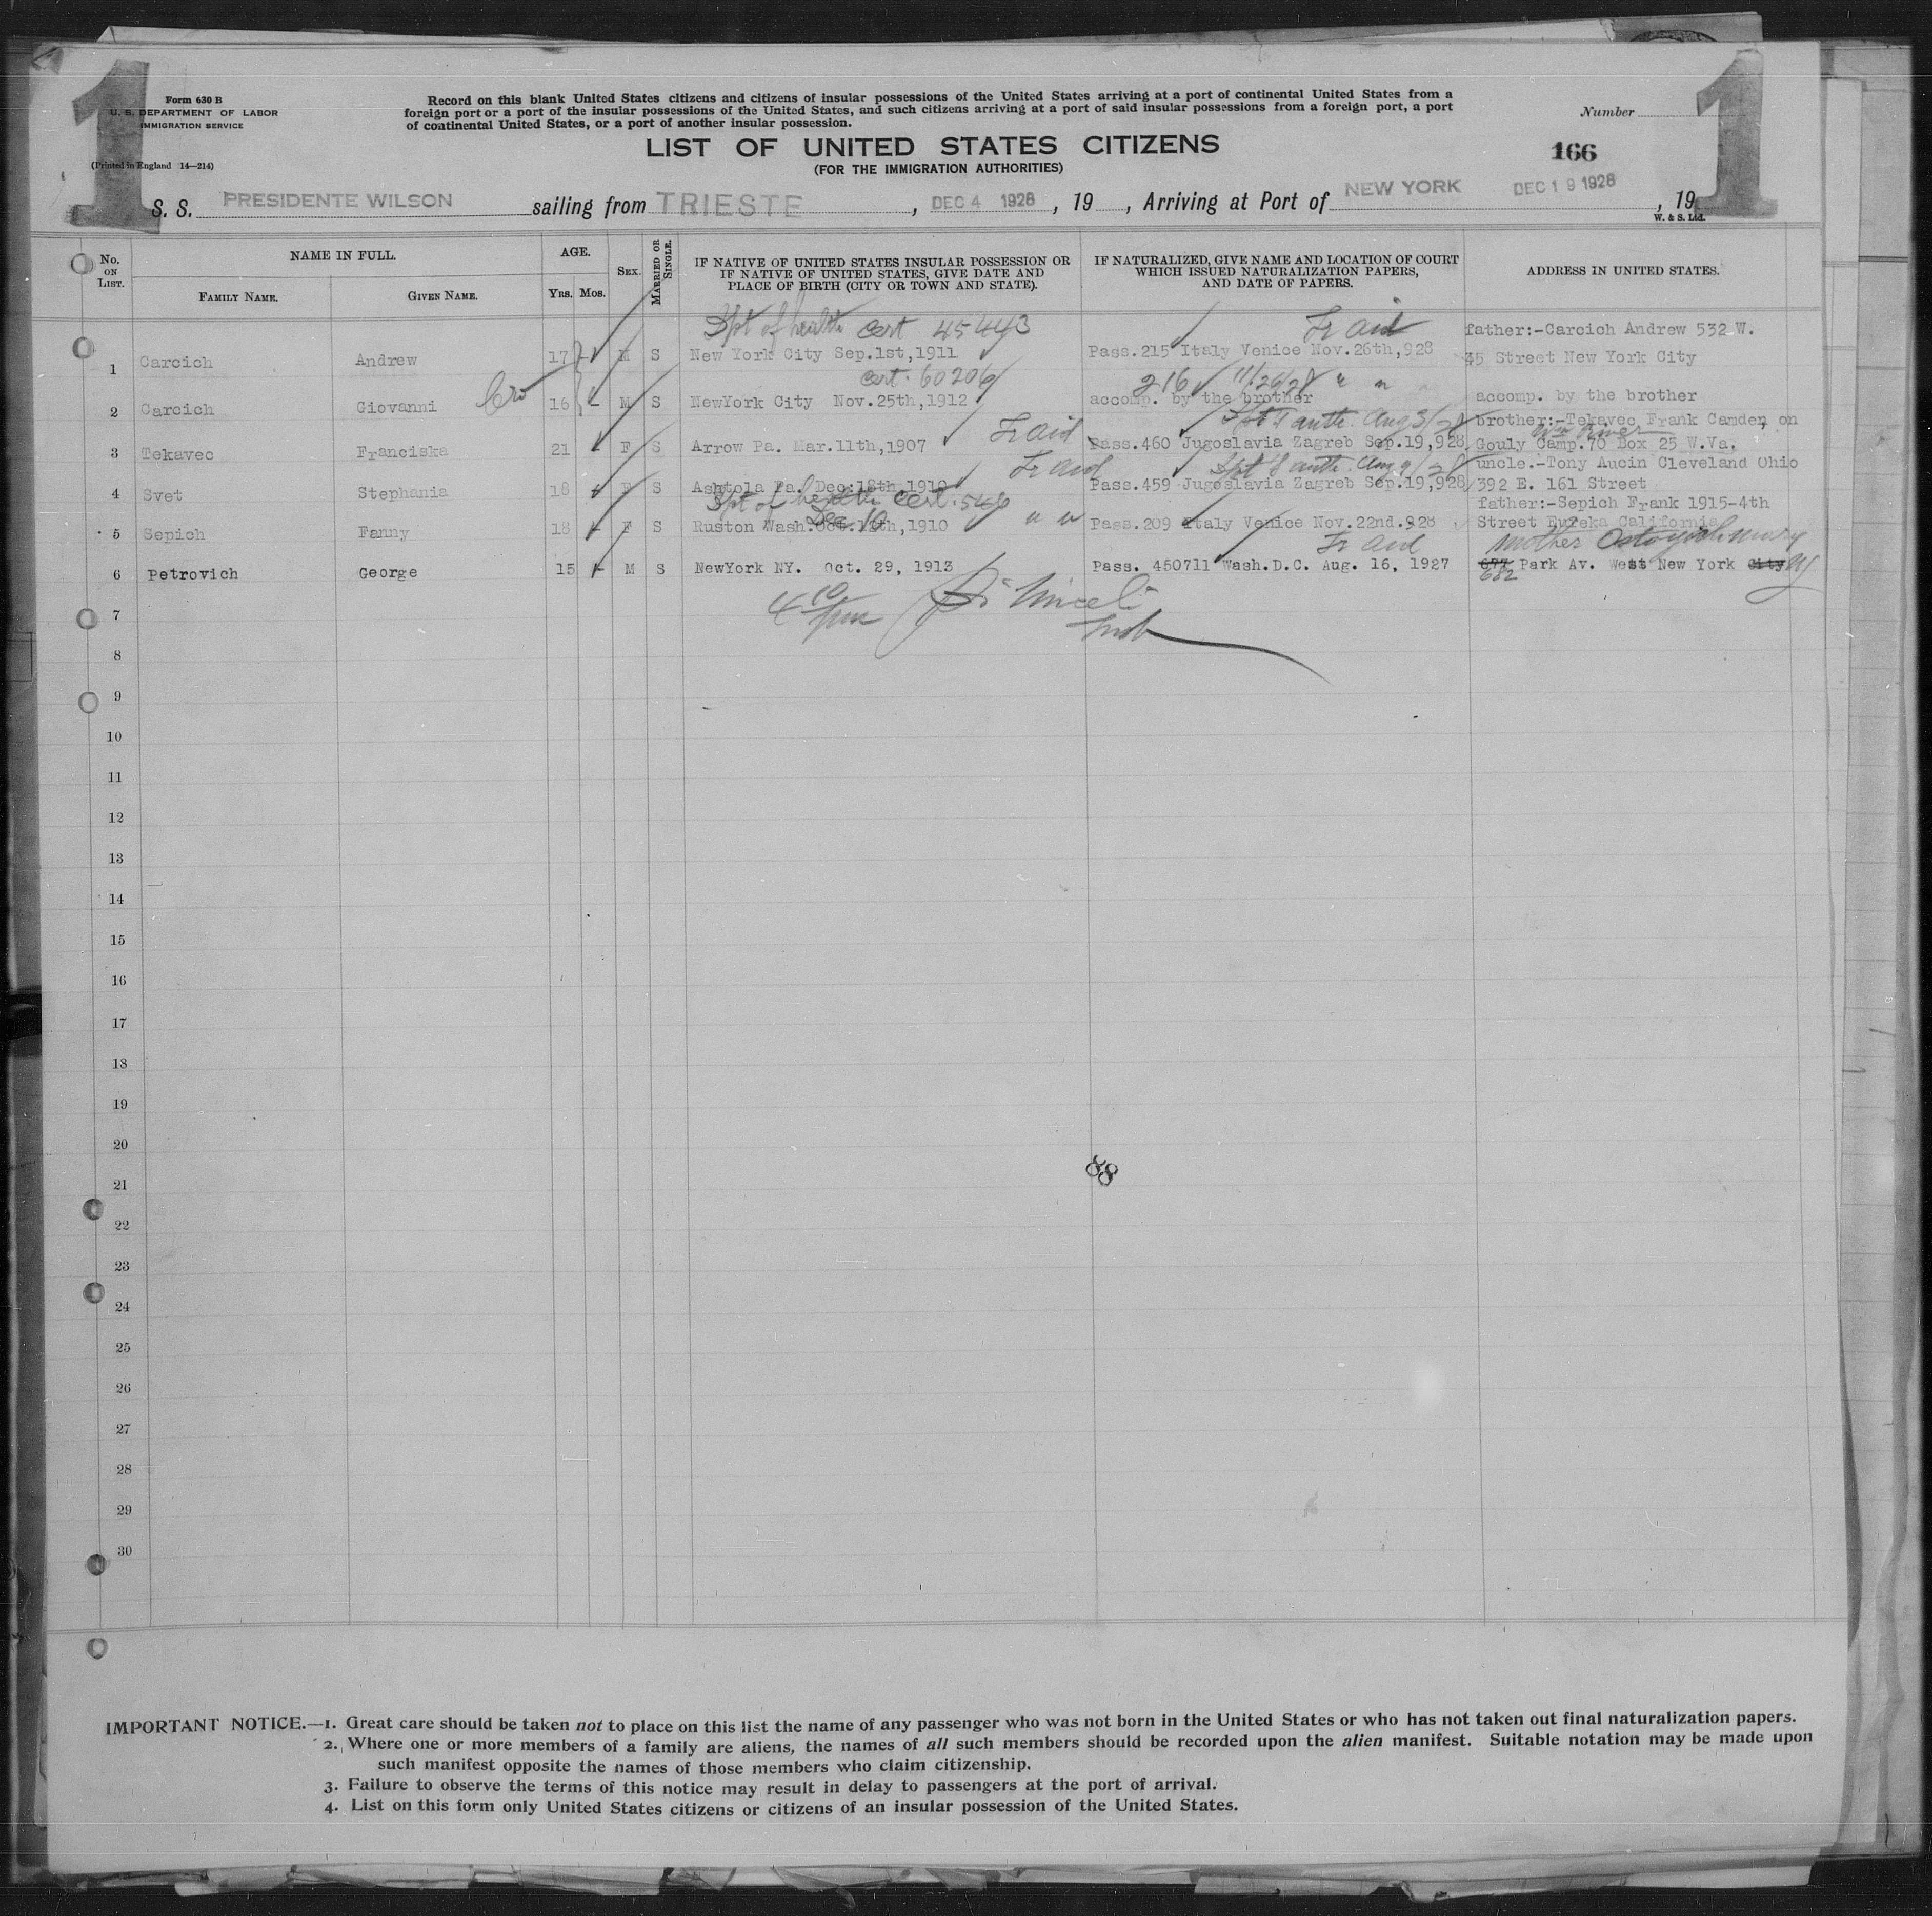 1 1
Form 630 B
U. S. DEPARTMENT OF LABOR
IMMIGRATION SERVICE
(Printed in England 14—214)
Record on this blank United States citizens and citizens of insular possessions of the United States arriving at a port of continental United States from a
foreign port or a port of the insular possessions of the United States, and such citizens arriving at a port of said insular possessions from a foreign port, a port
of continental United States, or a port of another insular possession.
Number
LIST OF UNITED STATES CITIZENS
(FOR THE IMMIGRATION AUTHORITIES)
166
S. S. PRESIDENTE WILSON sailing from TRIESTE, DEC 4 1928, 19 , Arriving at Port of NEW YORK DEC 19 1928, 19
W. & S. Ltd.
No. ON LIST.
NAME IN FULL.
FAMILY NAME. GIVEN NAME.
AGE.
YRS. MOS.
SEX.
MARRIED OR SINGLE.
IF NATIVE OF UNITED STATES INSULAR POSSESSION OR
IF NATIVE OF UNITED STATES, GIVE DATE AND
PLACE OF BIRTH (CITY OR TOWN AND STATE).
IF NATURALIZED, GIVE NAME AND LOCATION OF COURT
WHICH ISSUED NATURALIZATION PAPERS,
AND DATE OF PAPERS.
ADDRESS IN UNITED STATES.
Dpt of health Cert 45443 father:-Carcich Andrew 532 W.
1 Carcich Andrew 17 M S New York City Sep.1st,1911 Pass.215 Italy Venice Nov.26th,928 45 Street New York City
Cert. 60206 216 11/26/28 " "
2 Carcich Giovanni 16 M S NewYork City Nov.25th,1912 accomp. by the brother accomp. by the brother
auth. Aug 3/28 brother:-Tekavec Frank Camden on
3 Tekavec Franciska 21 F S Arrow Pa. Mar.11th,1907 Pass.460 Jugoslavia Zagreb Sep.19,928 Gouly Camp.70 Box 25 W.Va.
auth. Aug 9/28 uncle.-Tony Aucin Cleveland Ohio
4 Svet Stephania 18 F S Ashtola Pa. Dec.18th,1910 Pass.459 Jugoslavia Zagreb Sep.19,928 392 E. 161 Street
Dpt of health Cert. 546 father:-Sepich Frank 1915-4th
5 Sepich Fanny 18 F S Ruston Wash. Oct. 12th,1910 Dec. 10 " " Pass.209 Italy Venice Nov.22nd.928 Street Eureka California
mother
6 Petrovich George 15 M S NewYork NY. Oct. 29, 1913 Pass. 450711 Wash.D.C. Aug. 16, 1927 677 682 Park Av. West New York City NJ
7
8
9
10
11
12
13
14
15
16
17
18
19
20
21
22
23
24
25
26
27
28
29
30
IMPORTANT NOTICE.—1. Great care should be taken not to place on this list the name of any passenger who was not born in the United States or who has not taken out final naturalization papers.
2. Where one or more members of a family are aliens, the names of all such members should be recorded upon the alien manifest. Suitable notation may be made upon
such manifest opposite the names of those members who claim citizenship.
3. Failure to observe the terms of this notice may result in delay to passengers at the port of arrival.
4. List on this form only United States citizens or citizens of an insular possession of the United States.